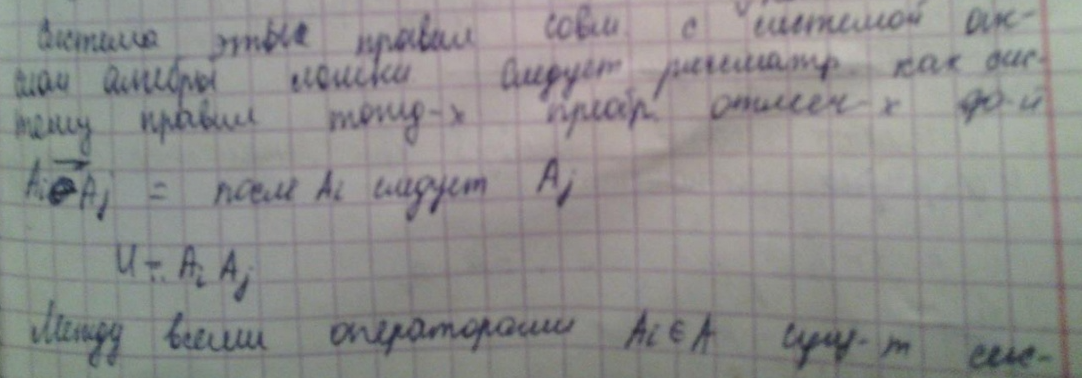 система этих правил совм. с системой ак-
сиом алгебры логики следует рассматр. как сис-
тему правил тожд-х преобр. отмечен-х ф-й
Ai Aj = после Ai следует Aj
U ÷ Ai Aj
Между всеми операторами Ai ∈ A сущ-т